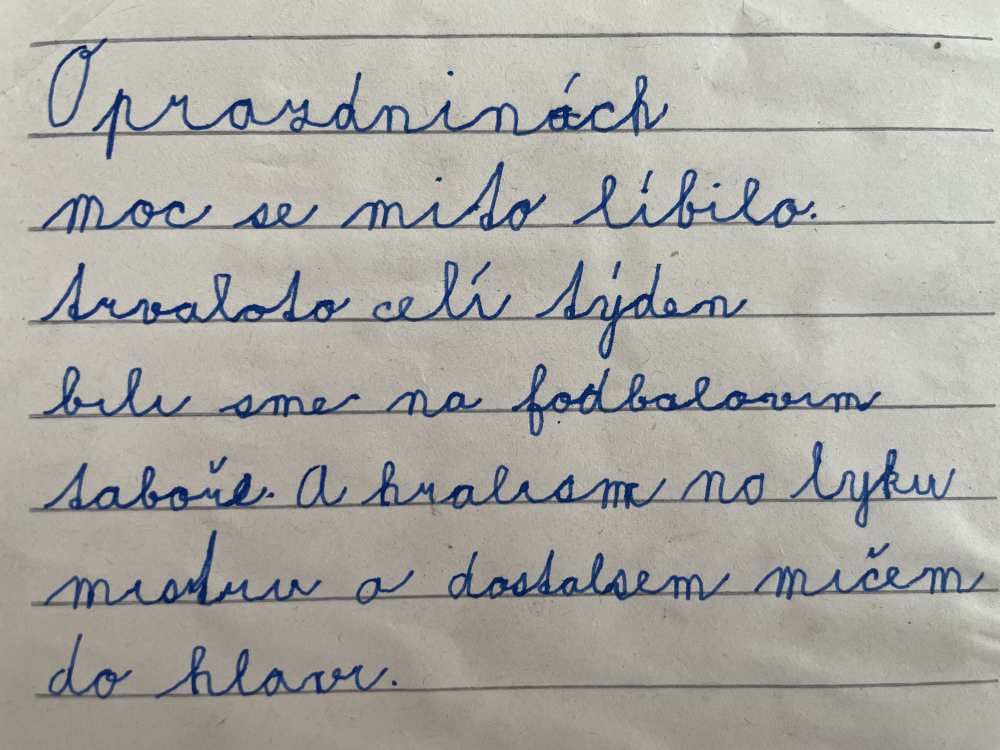 O prazdninách
moc se mi to líbilo.
trvaloto celí týden
bili sme na fodbalovim
taboře. A hralismε na lyku
mistru a dostalsem mičem
do hlavi.